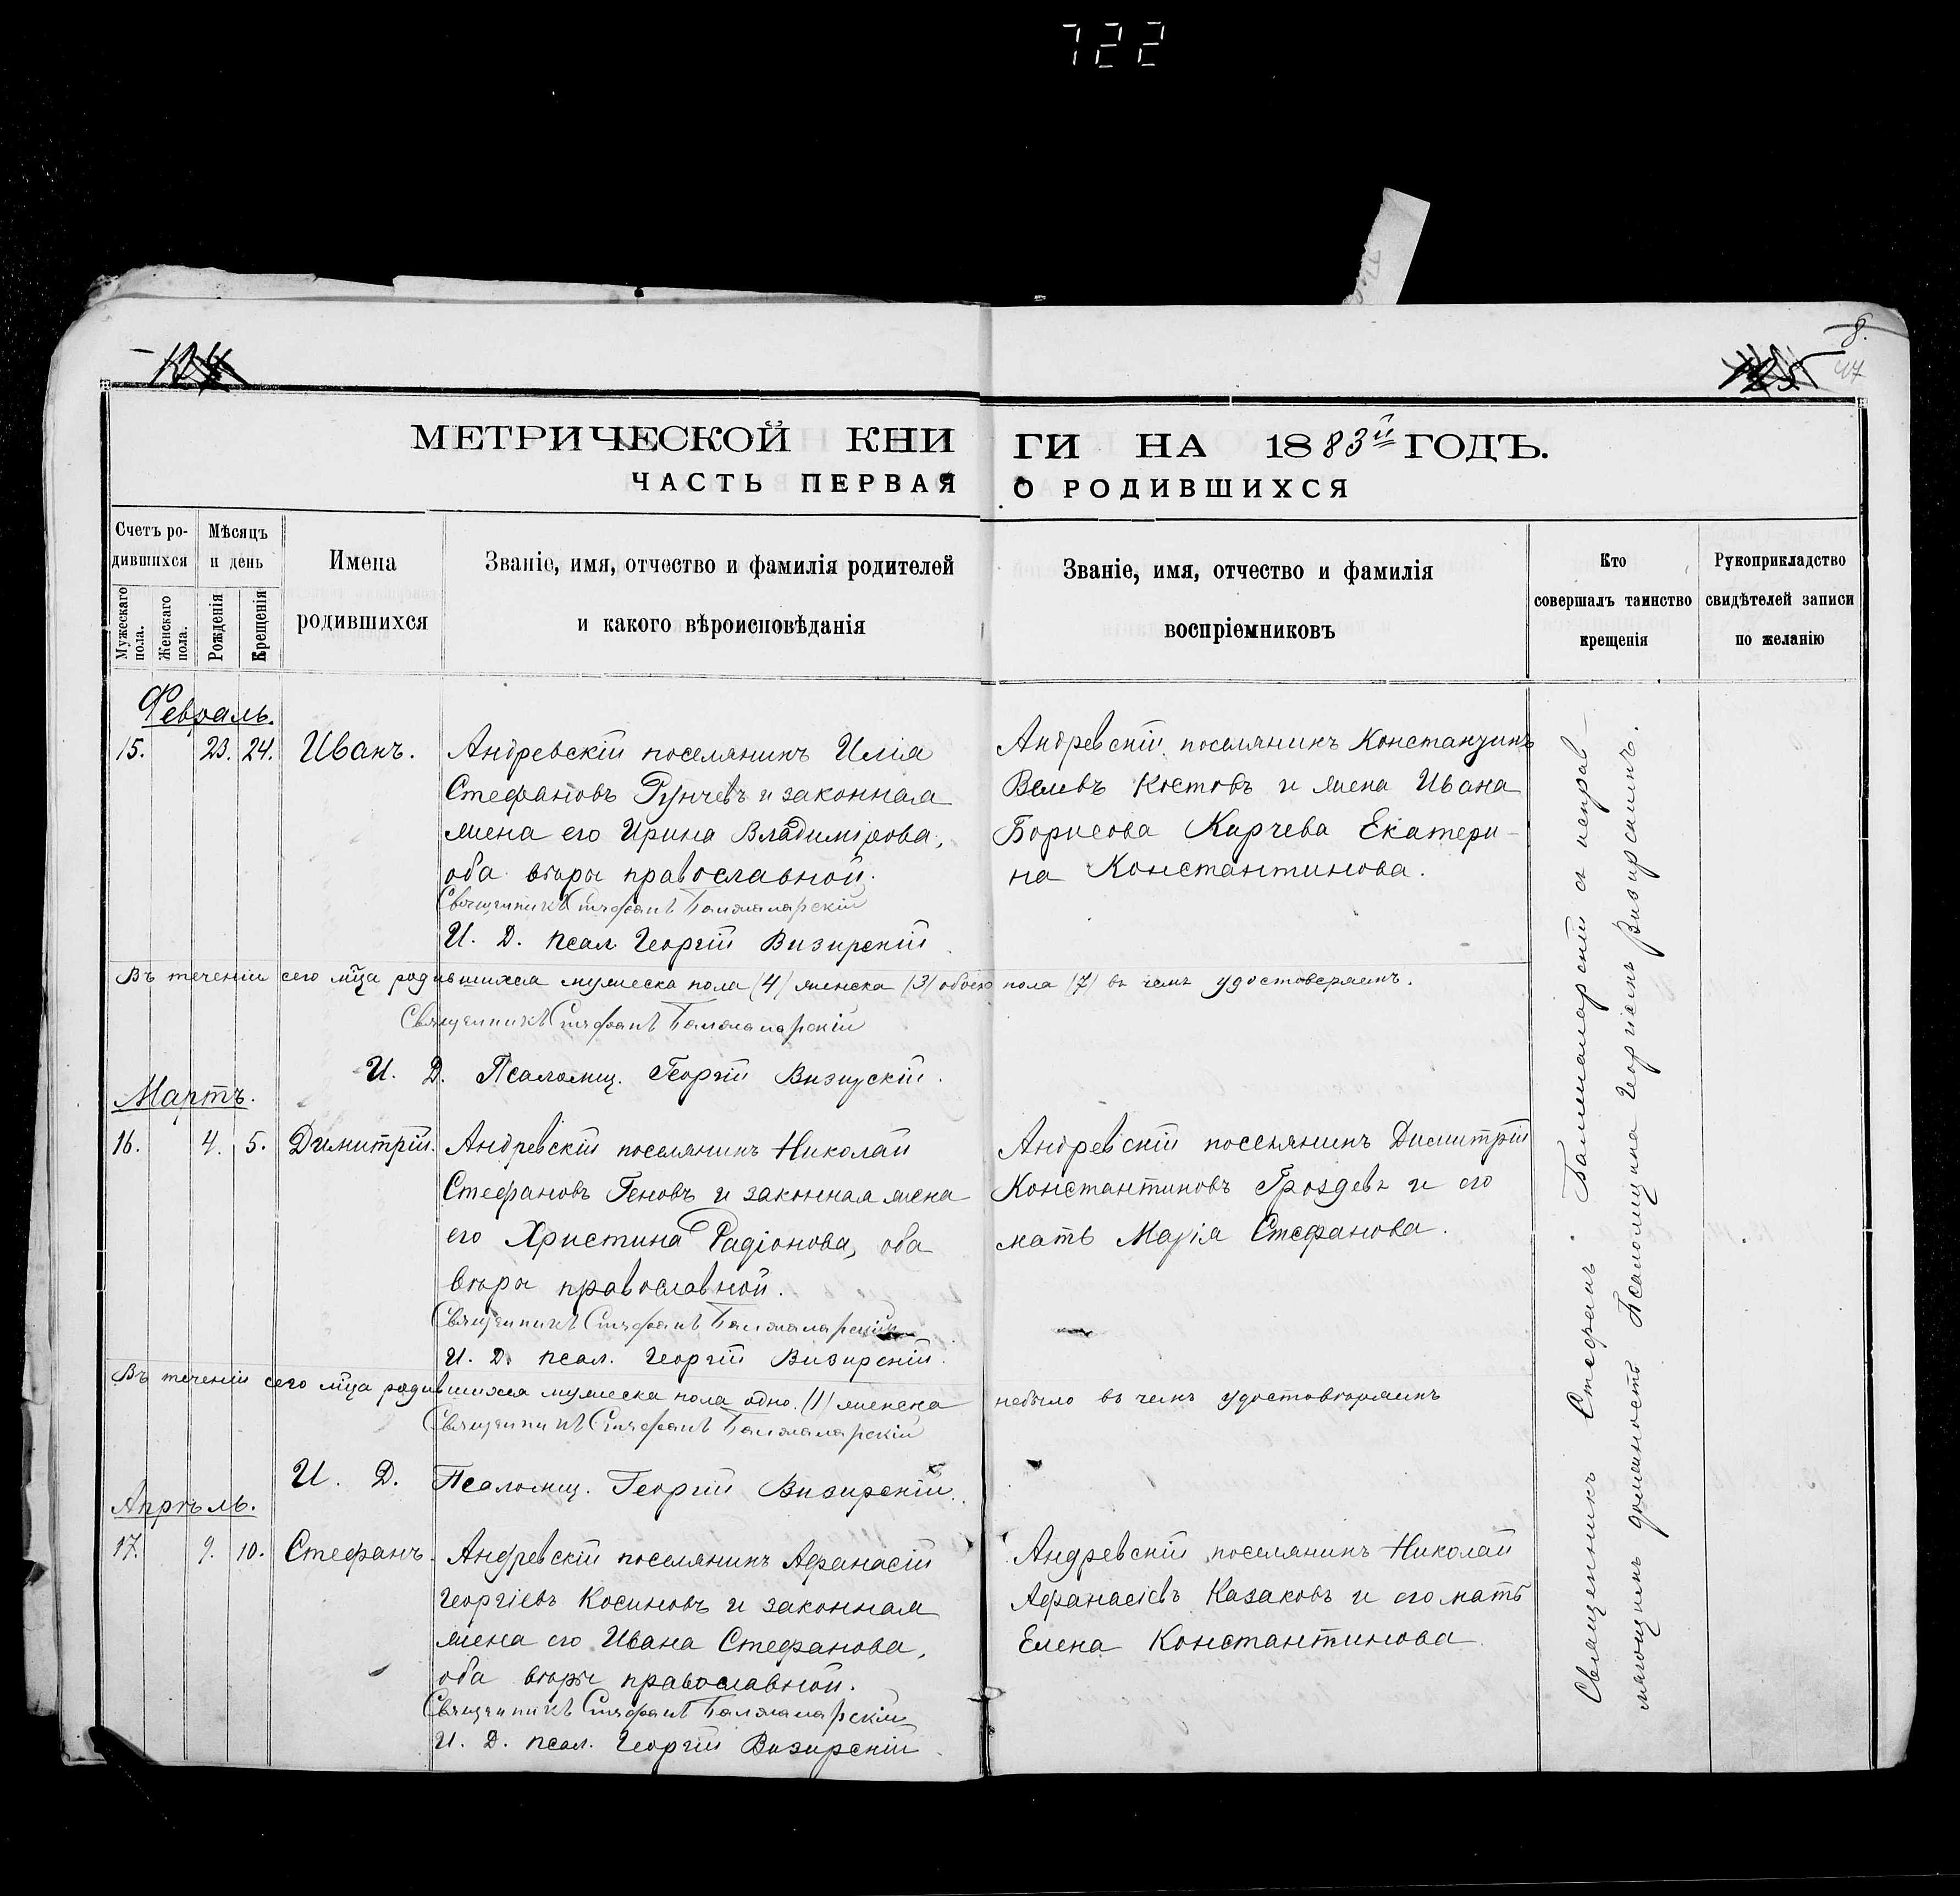 722
8.
47
МЕТРИЧЕСКОЙ КНИ ГИ НА 1883й ГОДЪ.
ЧАСТЬ ПЕРВАЯ О РОДИВШИХСЯ
Счетъ ро-
дившихся
Мужескаго пола.
Женскаго пола.
Мѣсяцъ
и день
Рожденія
Крещенія
Имена
родившихся
Званіе, имя, отчество и фамилія родителей
и какого вѣроисповѣданія
Званіе, имя, отчество и фамилія
воспріемниковъ
Кто
совершалъ таинство
крещенія
Рукоприкладство
свидѣтелей записи
по желанію
Февраль.
15. 23. 24. Иванъ.
Андревскій поселянинъ Илія
Стефановъ Рунчевъ и законная
жена его Ирина Владимірова,
оба вѣры православной.
Священникъ Стефанъ
И. Д. псал Георгій Визирскій
Андревскій поселянинъ Константинъ
Велевъ Костовъ и жена Ивана
Борисова Карчева Екатери-
на Константинова.
Въ теченіи сего мца родившихся мужеска пола (4) женска (3) обоего пола (7) въ чемъ удостоверяемъ.
Священникъ Стефанъ
И. Д. Псаломщ. Георгій Визирскій.
Мартъ.
16. 4. 5. Димитрій.
Андревскій поселянинъ Николай
Стефановъ Геновъ и законная жена
его Христина Радіонова, оба
вѣры православной.
Священникъ Стефанъ
И. Д. псал. Георгій Визирскій.
Андревскій поселянинъ Димитрій
Константиновъ Гроздевъ и его
мать Марія Стефанова.
Въ теченіи сего мца родившихся мужеска пола одно. (1) женска небыло въ чемъ удостовѣряемъ
Священникъ Стефанъ
И. Д. Псаломщ. Георгій Визирскій.
Апрѣль.
17. 9. 10. Стефанъ.
Андревскій поселянинъ Афанасій
Георгіевъ Косиновъ и законная
жена его Ивана Стефанова,
оба вѣры православной.
Священникъ Стефанъ
И. Д. псал. Георгій Визирскій
Андревскій поселянинъ Николай
Афанасіевъ Казаковъ и его мать
Елена Константинова
Священникъ Стефанъ и исправ-
ляющимъ должность Псаломщика Георгіемъ Визирскимъ.